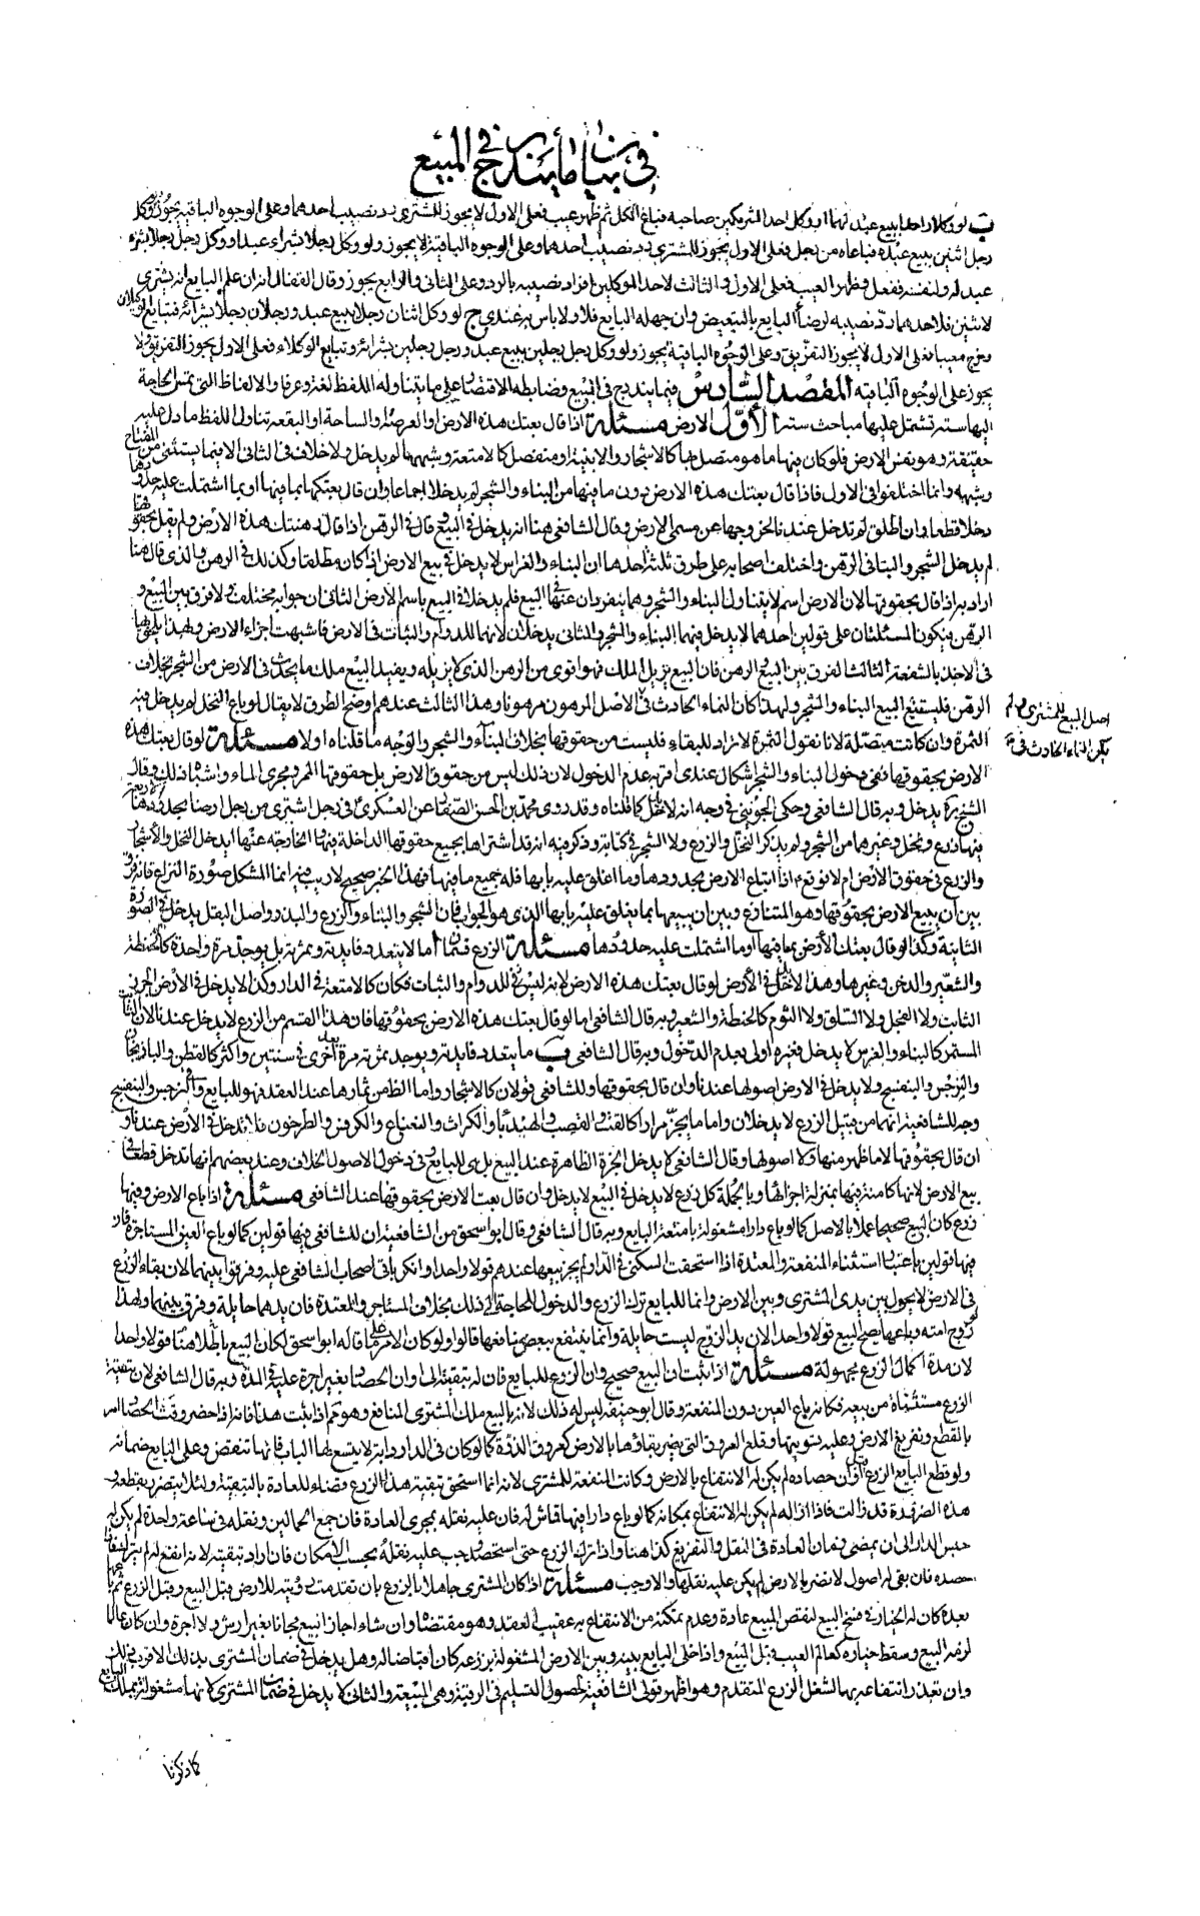 في بيان ما يندرج في المبيع
ب لو وكلا واحدا ببيع عبد لهما او وكل احد الشريكين صاحبه فباع الكل ثم ظهر عيب فعلى الاول لا يجوز للمشتري رد نصيب احدهما وعلى الوجوه الباقية يجوز ولو وكل
رجل اثنين ببيع عبده فباعاه من رجل فعلى الاول يجوز للمشتري رد نصيب احدهما وعلى الوجوه الباقية لا يجوز ولو وكل رجلا بشراء عبد او وكل رجل رجلا بشراء
عبد له ولنفسه ففعل وظهر العيب فعلى الاول والثالث لاحد الموكلين افراد نصيبه بالرد وعلى الثاني والرابع يجوز وقال القفال ان علم البايع انه يشتري
لاثنين فلاحدهما رد نصيبه لرضا البايع بالتبعيض وان جهله البايع فلا ولا باس به عندي ج لو وكل اثنان رجلا ببيع عبد ورجلان رجلا بشرائه فتبايع الوكيلان
وخرج معيبا فعلى الاول لا يجوز التفريق وعلى الوجوه الباقية يجوز ولو وكل رجل رجلين ببيع عبد ورجل رجلين بشرائه وتبايع الوكلاء فعلى الاول يجوز التفريق ولا
يجوز على الوجوه الباقية المقصد السادس فيما يندرج في المبيع وضابطه الاقتصار على ما يتناوله اللفظ لغة وعرفا والالفاظ التي تمس الحاجة
اليها ستة تشتمل عليها مباحث ستة الأول الارض مسئلة اذا قال بعتك هذه الارض او العرصة او الساحة او البقعة تناول اللفظ ما دل عليه
حقيقة وهو نفس الارض فلو كان فيها ما هو متصل بها كالاشجار والابنية او منفصل كالامتعة وشبهها لم يدخل ولا خلاف في الثاني الا فيما يستثنى من المفتاح
وشبهه وانما اختلفوا في الاول فاذا قال بعتك هذه الارض دون ما فيها من البناء والشجر لم يدخلا اجماعا وان قال بعتكها بما فيها او بما اشتملت عليه حدودها
دخلا قطعا وان اطلق لم تدخل عندنا لخروجها عن مسمى الارض وقال الشافعي هنا انه يدخل في البيع وقال في الرهن اذا قال رهنتك هذه الارض ولم يقل بحقوقها
لم يدخل الشجر والبناء في الرهن واختلف اصحابه على طرق ثلثة احدها ان البناء والغراس لا يدخل في بيع الارض اذا كان مطلقا وكذلك في الرهن والذي قال هنا
اراد به اذا قال بحقوقها لان الارض اسم لا يتناول البناء والشجر وهما ينفردان عنها في البيع فلم يدخلا في البيع باسم الارض الثاني ان جوابه مختلف ولا فرق بين البيع و
الرهن فيكون المسئلتان على قولين احدهما لا يدخل فيهما البناء والشجر والثاني يدخلان لانهما للدوام والثبات في الارض فاشبهت اجزاء الارض ولهذا يلحق بها
في الاخذ بالشفعة الثالث الفرق بين البيع والرهن فان البيع يزيل الملك فهو اقوى من الرهن الذي لا يزيله ويفيد البيع ملك ما يحدث في الارض من الشجر بخلاف
الرهن فليستتبع البيع البناء والشجر ولهذا كان النماء الحادث في الاصل المرهون مرهونا وهذا الثالث عندهم اوضح الطرق لا يقال لو باع النخل لم يدخل فيه
اصل المبيع للمشتري ولم
يكن النماء الحادث في
الثمرة وان كانت متصلة لانا نقول الثمرة لا تراد للبقاء فليست من حقوقها بخلاف البناء والشجر والوجه ما قلناه اولا مسئلة لو قال بعتك هذه
الارض بحقوقها ففي دخول البناء والشجر اشكال عندي اقربه عدم الدخول لان ذلك ليس من حقوق الارض بل حقوقها الممر ومجرى الماء واشباه ذلك وقال
الشيخ يدخل وبه قال الشافعي وحكى الجويني في وجه انه لا يدخل كما قلناه وقد روى محمد بن الحسن الصفار عن العسكري في رجل اشترى من رجل ارضا بحدودها الاربعة
فيها زرع ونخل وغيرها من الشجر ولم يذكر النخل والزرع ولا الشجر في كتابه وذكر فيه انه قد اشتراها بجميع حقوقها الداخلة فيها الخارجة عنها ايدخل النخل والاشجار
والزرع في حقوق الارض ام لا فوقع اذا ابتاع الارض بحدودها وما اغلق عليه بابها فله جميع ما فيها فهذا الخبر صحيح لا ريب فيه انما المشكل صورة النزاع فانه فرق
بين ان يبيع الارض بحقوقها وهو المتنازع وبين ان يبيعها بما يغلق عليه بابها الذي هو الجواب فان الشجر والبناء والزرع والبذر واصل البقل يدخل في الصورة
الثانية وكذا لو قال بعتك الارض بما فيها او ما اشتملت عليه حدودها مسئلة الزرع قسمان ا ما لا يتعدد فايدته وثمرته بل يوجد مرة واحدة كالحنطة
والشعير والدخن وغيرها وهذا لا يدخل في الارض لو قال بعتك هذه الارض لانه ليس في للدوام والثبات فكان كالامتعة في الدار وكذا لا يدخل في الارض الجزر
الثابت ولا الفجل ولا السلق ولا الثوم كالحنطة والشعير وبه قال الشافعي اما لو قال بعتك هذه الارض بحقوقها فان هذا القسم من الزرع لا يدخل عندنا لان الثابت
المستمر كالبناء والغرس لا يدخل فغيره اولى بعدم الدخول وبه قال الشافعي ب ما يتعدد فايدته ويوجد ثمرته مرة بعد اخرى في سنتين واكثر كالقطن والباذنجان
والنرجس والبنفسج ولا يدخل في الارض اصولها عندنا وان قال بحقوقها وللشافعي قولان كالاشجار واما الظاهر من ثمارها عند العقد فهو للبايع وفي النرجس والبنفسج
وجه للشافعية انهما من قبيل الزرع لا يدخلان واما ما يجز مرارا كالقت والقصب والهندباء والكراث والنعناع والكرفس والطرخون فلا تدخل في الارض عندنا و
ان قال بحقوقها لا ما ظهر منها ولا اصولها وقال الشافعي لا يدخل الجزة الظاهرة عند البيع بل هي للبايع وفي دخول الاصول الخلاف وعند بعضهم انها تدخل قطعا في
بيع الارض لانها كامنة فيها بمنزلة اجزائها وبالجملة كل زرع لا يدخل في البيع لا يدخل وان قال بعت الارض بحقوقها عند الشافعي مسئلة اذا باع الارض وفيها
زرع كان البيع صحيحا عملا بالاصل كما لو باع دارا مشغولة بامتعة البايع وبه قال الشافعي وقال ابو اسحق من الشافعية ان للشافعي فيها قولين كما لو باع العين المستاجرة فان
فيها قولين باعتبار استثناء المنفعة والمعتدة اذا استحقت السكنى في الدار لم يجز بيعها عندهم قولا واحدا وانكر باقي اصحاب الشافعي عليه وفرقوا بينهما لان بقاء الزرع
في الارض لا يحول بين يدي المشتري وبين الارض وانما للبايع ترك الزرع والدخول للحاجة الى ذلك بخلاف المستاجر والمعتدة فان يدهما حايلة وفرق بينهما ولهذا لو
زوج امته وباعها يصح البيع قولا واحدا لان يد الزوج ليست حايلة وانما ينتفع ببعض منافعها قالوا ولو كان الامر على ما قاله ابو اسحق لكان البيع باطلا هنا قولا واحدا
لان مدة اكمال الزرع مجهولة مسئلة اذا ثبت ان البيع صحيح وان الزرع للبايع فان له تبقيته الى اوان الحصاد بغير اجرة عليه في المدة وبه قال الشافعي لان تبقية
الزرع مستثناة من بيعه فكانه باع العين دون المنفعة وقال ابو حنيفة ليس له ذلك لانه بالبيع ملك المشتري المنافع وهو اذا ثبت هذا فانه اذا حضر وقت الحصاد امر
بالقطع وتفريغ الارض وعليه تسويتها وقلع العروق التي يضر بقاؤها بالارض كعروق الذرة كما لو كان في الدار دابة لا يتسع لها الباب فانها تنقض وعلى البايع ضمانه
ولو قطع البايع الزرع قبل اوان حصاده لم يكن له الانتفاع بالارض وكانت المنفعة للمشتري لانه انما استحق تبقية هذا الزرع قضاء للعادة بالتبقية ولئلا يتضرر بقطعه و
هذه الضرورة قد زالت فاذا ازاله لم يكن له الانتفاع بمكانه كما لو باع دارا فيها قماش له فان عليه نقله بمجرى العادة فان جمع الحمالين ونقله في ساعة واحدة لم يكن له
حبس الدار الى ان يمضي زمان العادة في النقل والتفريغ كذا هنا واذا ترك الزرع حتى استحصد وجب عليه نقله بحسب الامكان فان اراد تبقيته لانه انفع له لم يترك
حصده فان بقي له اصول لا تضر بالارض لم يكن عليه نقلها والا وجب مسئلة اذا كان المشتري جاهلا بالزرع بان تقدمت رؤيته للارض قبل البيع وقبل الزرع ثم باعها
بعده كان له الخيار في فسخ البيع لنقص المبيع عادة وعدم تمكنه من الانتفاع به عقيب العقد وهو مقتضاه وان شاء اجاز البيع مجانا بغير ارش ولا اجرة وان كان عالما
لزمه البيع وسقط خياره كعالم العيب قبل البيع واذا خلى البايع بينه وبين الارض المشغولة بزرعه كان اقباضا له وهل يدخل في ضمان المشتري بذلك الاقرب ذلك
وان تعذر انتفاعه بها لشغل الزرع المتقدم وهو اظهر قولي الشافعية لحصول التسليم في الرقبة وهي المبيعة والثاني لا يدخل في ضمان المشتري لانها مشغولة بملك البايع
كما ذكرنا